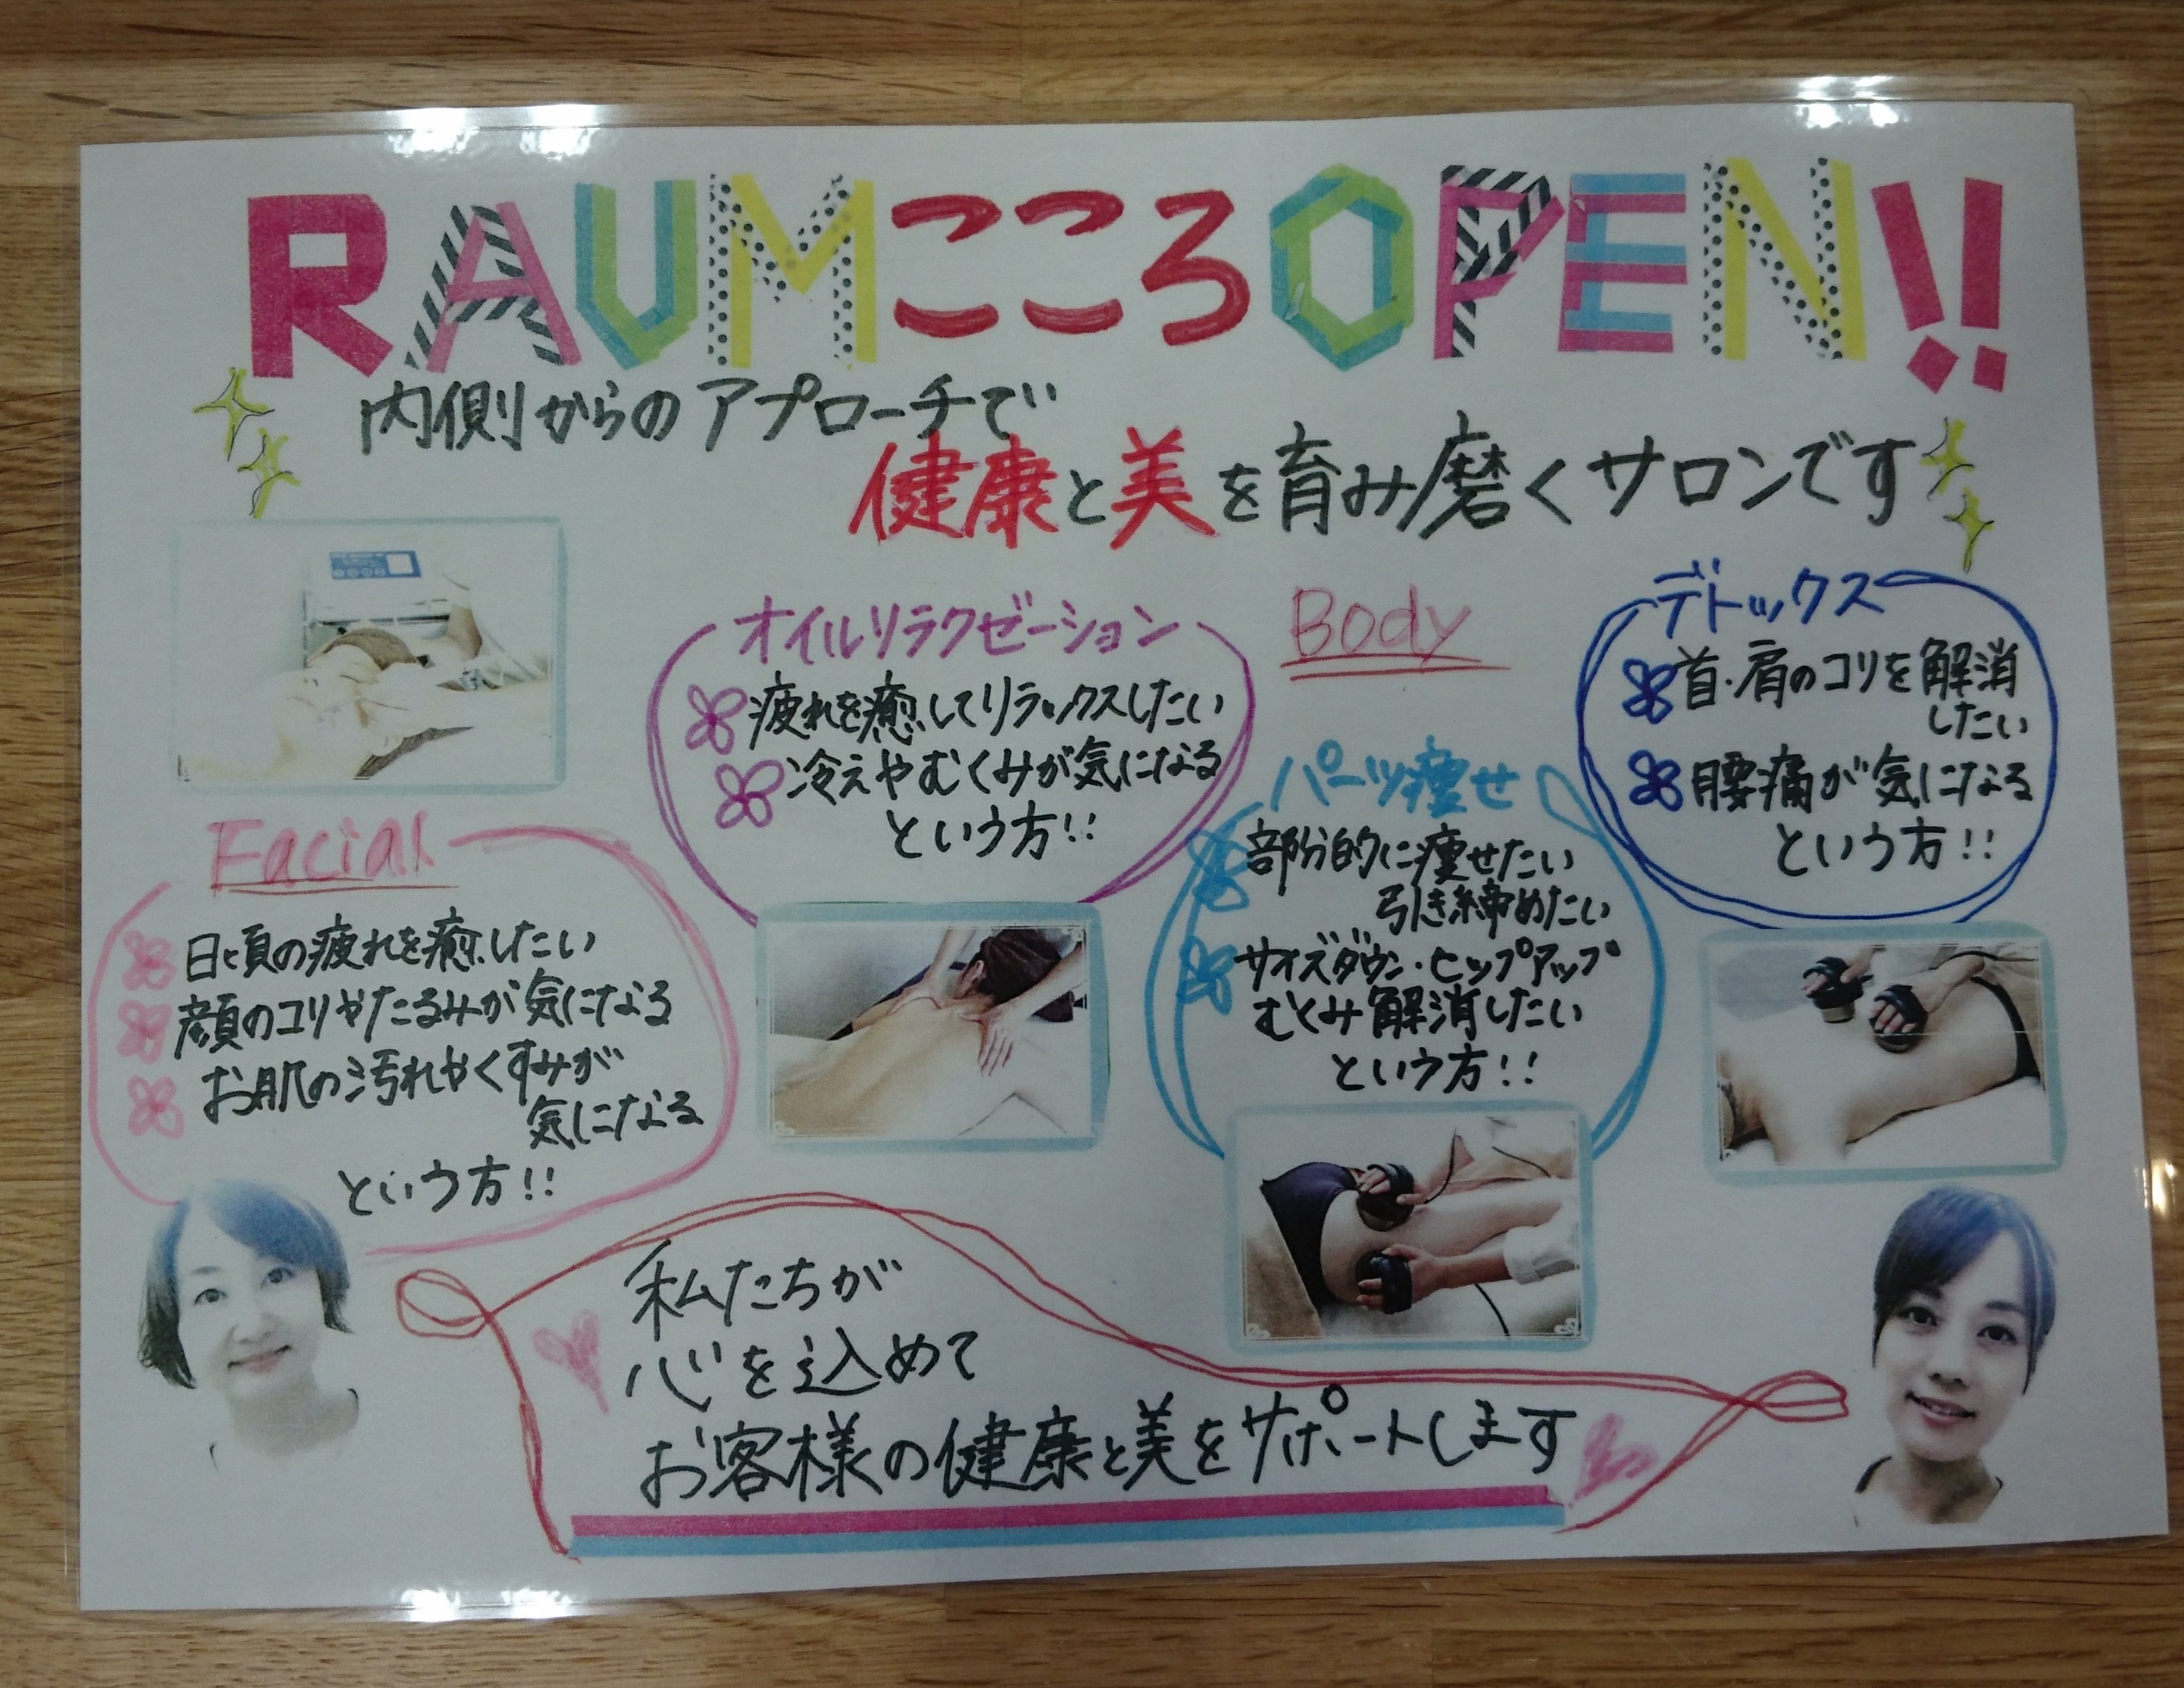 RAUMこころOPEN!!
内側からのアプローチで
健康と美を育み磨くサロンです
Facial
日頃の疲れを癒したい
顔のコリやたるみが気になる
お肌の汚れやくすみが
気になる
という方!!
オイルリラクゼーション
疲れを癒してリラックスしたい
冷えやむくみが気になる
という方!!
Body
パーツ痩せ
部分的に痩せたい
引き締めたい
サイズダウン・ヒップアップ
むくみ解消したい
という方!!
デトックス
首・肩のコリを解消
したい
腰痛が気になる
という方!!
私たちが
心を込めて
お客様の健康と美をサポートします